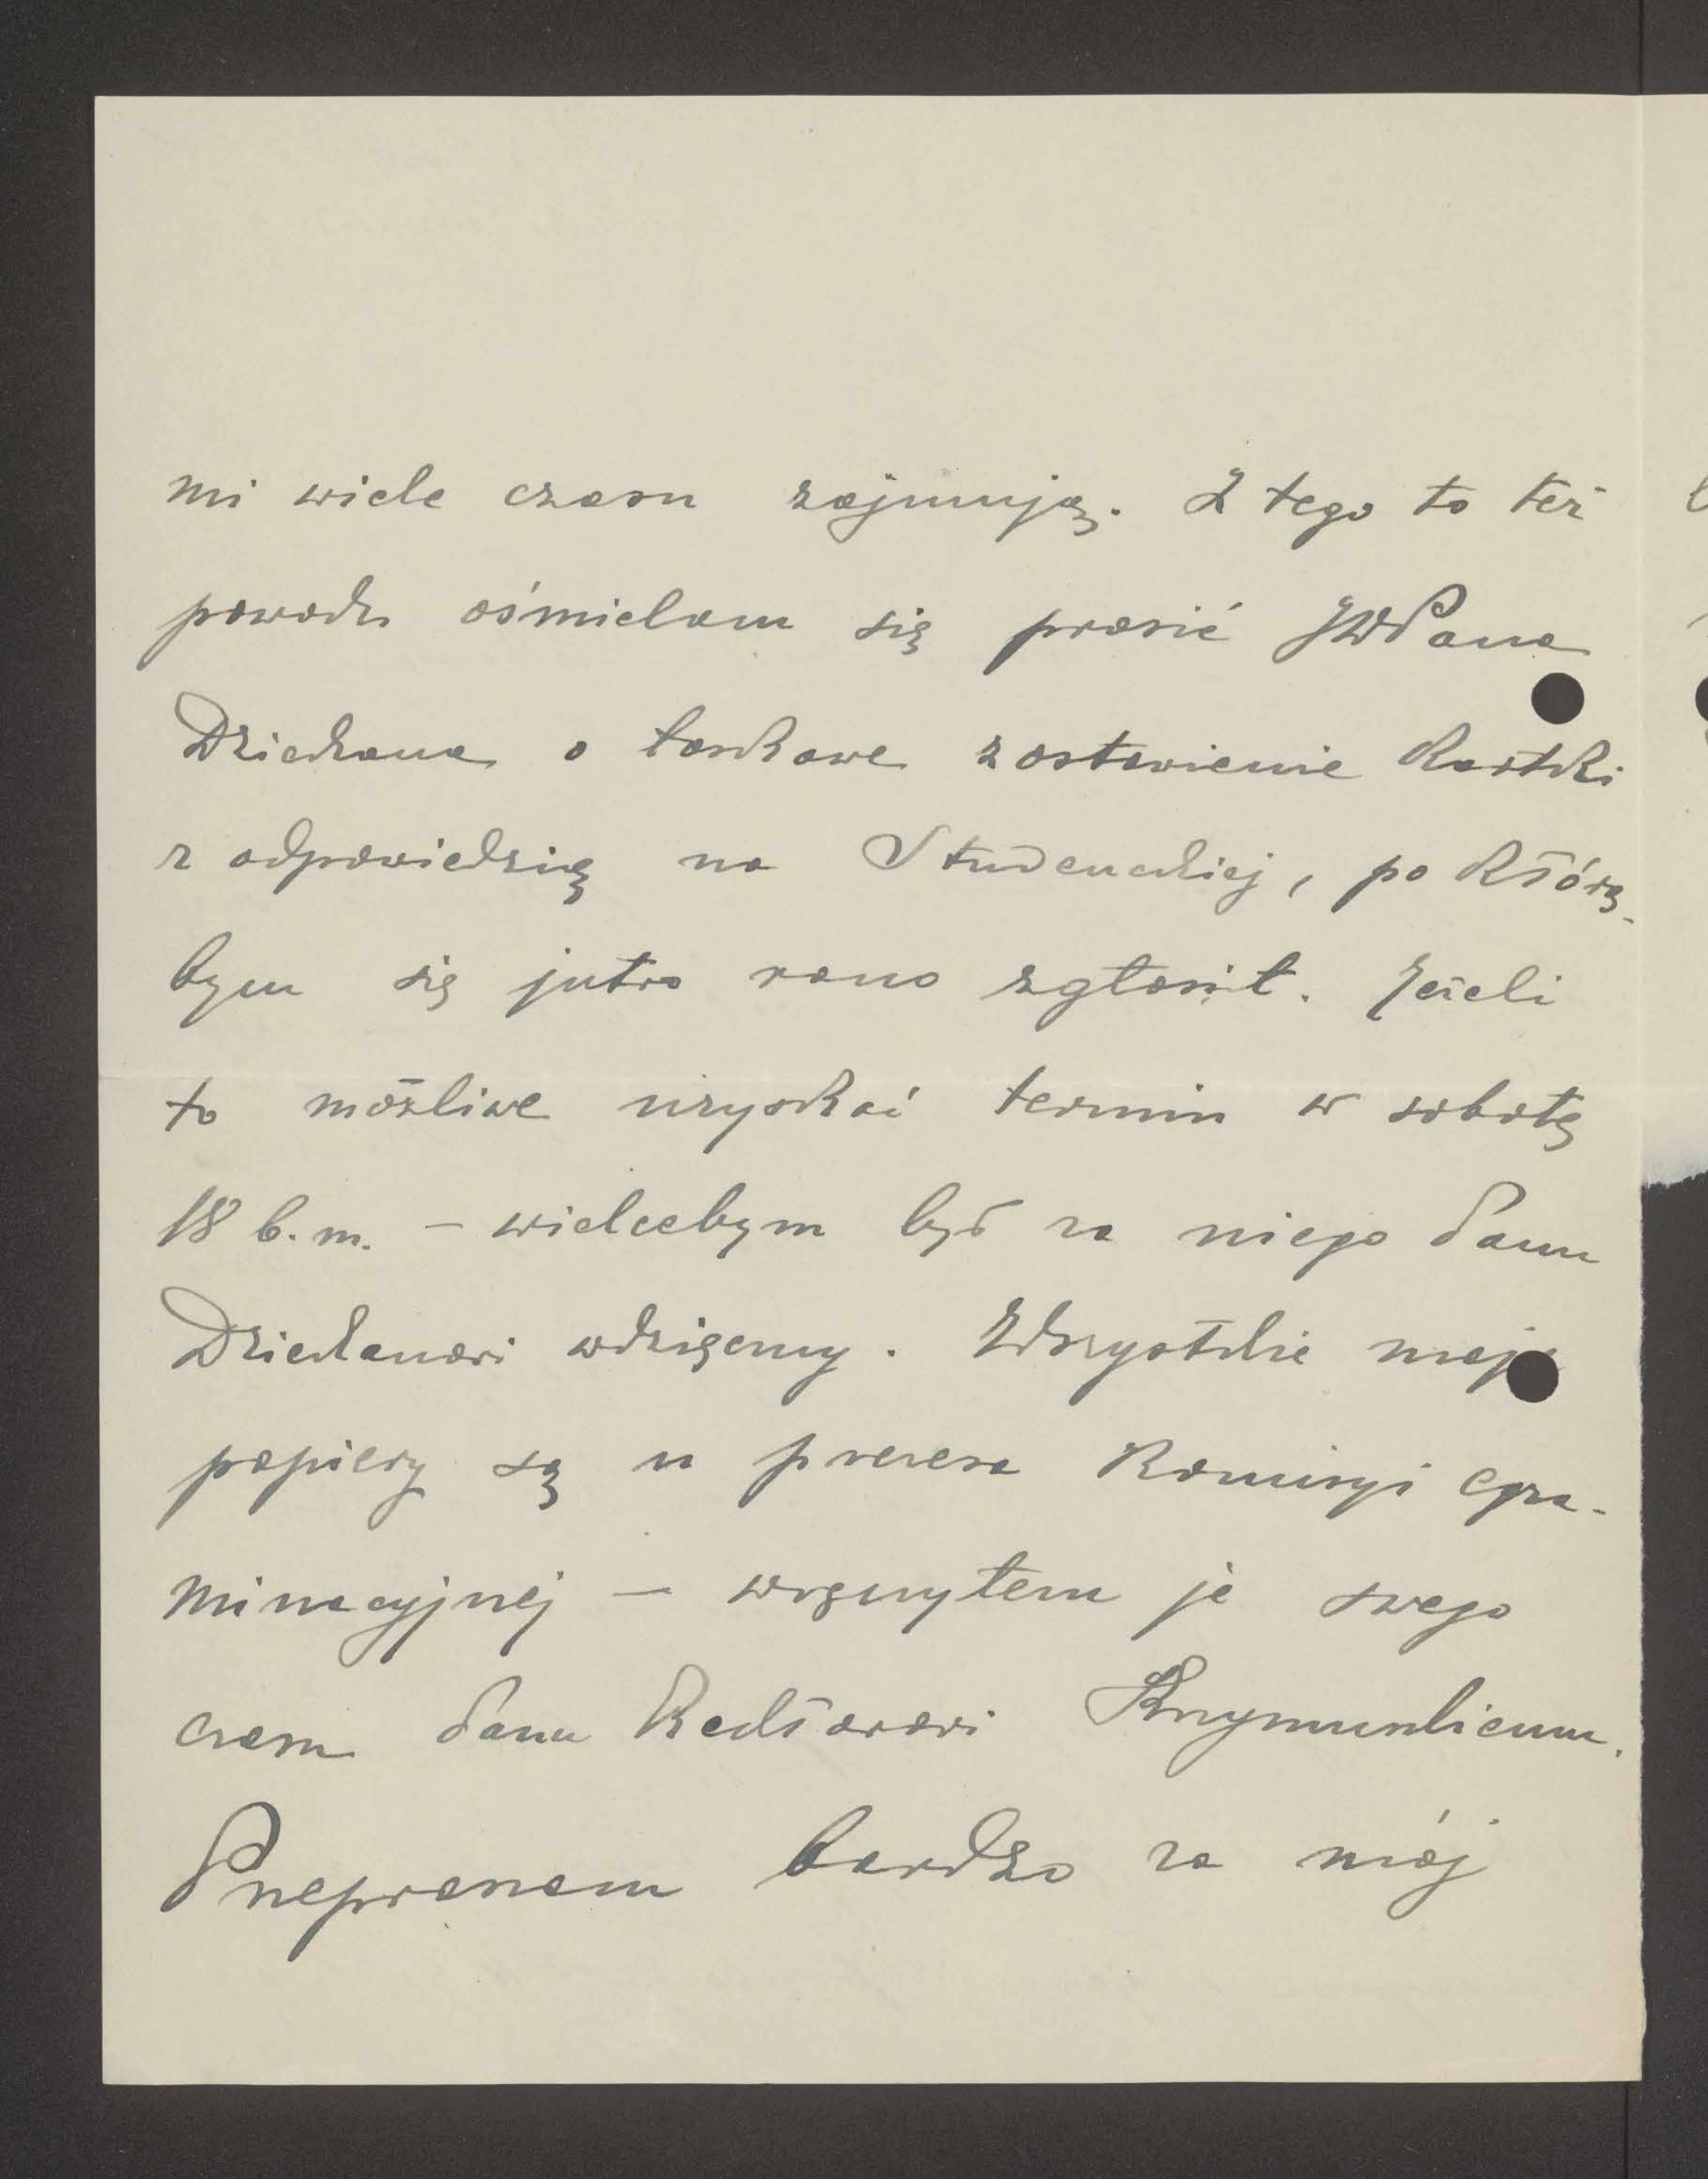 mi wiele czasu zajmują. Z tego to też
powodu ośmielam się prosić JWPana
Dziekana o łaskawe zostawienie kartki
z odpowiedzią na Studenckiej, po którą-
bym się jutro rano zgłosił. Jeżeli
to możliwe uzyskać termin w sobotę
18 b.m. – wielcebym był za niego Panu
Dziekanowi wdzięczny. Wszystkie moje
papiery są u prezesa Komisyi egza-
minacyjnej – wręczyłem je swego
czasu Panu Rektorowi Krzymuskiemu.
Przepraszam bardzo za mój